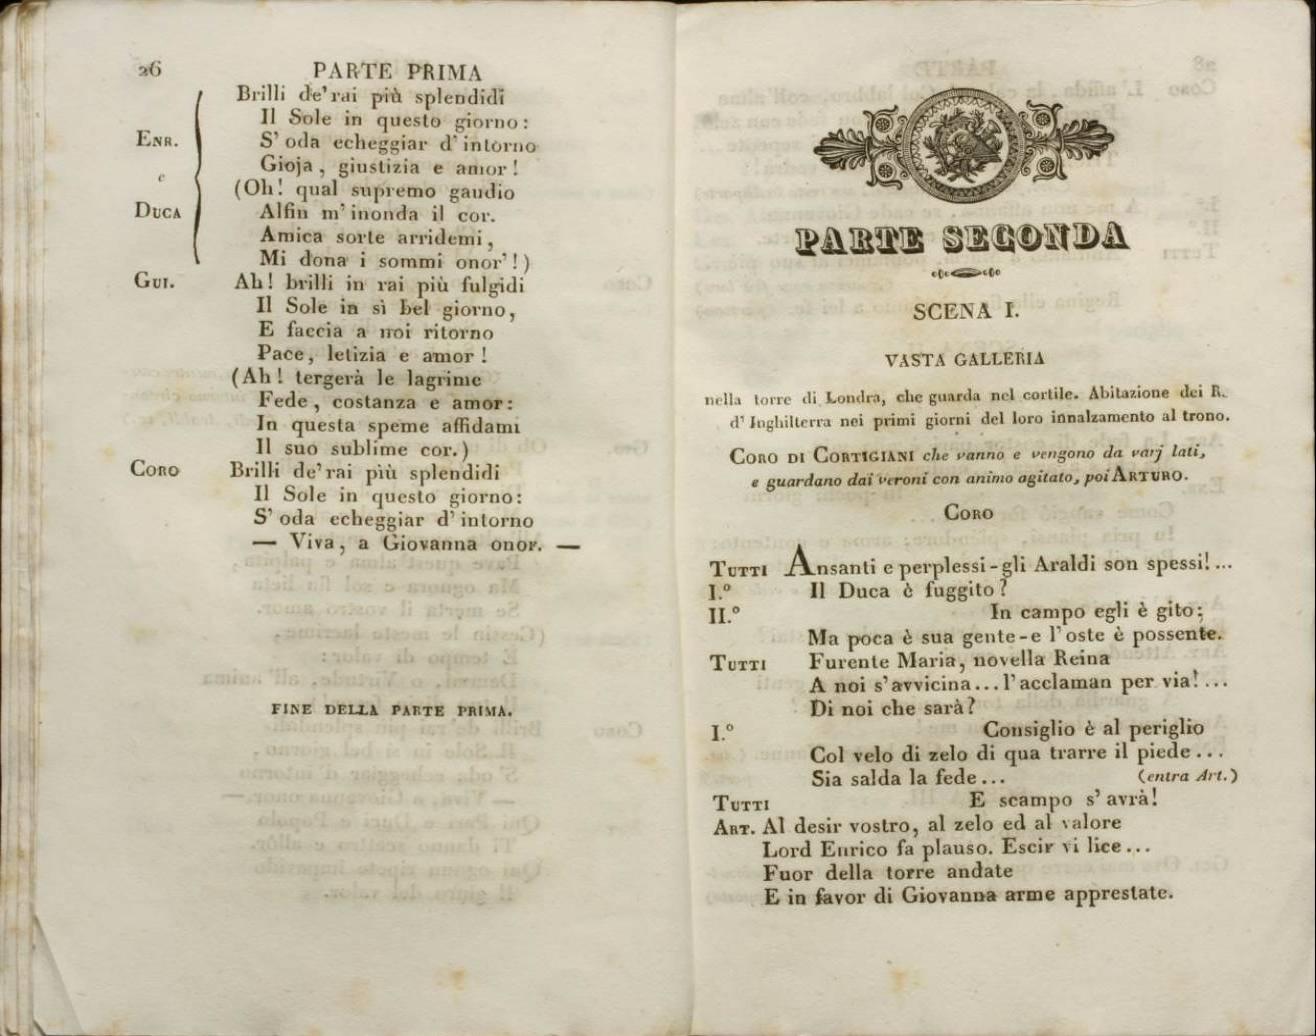 26 PARTE PRIMA
Brilli de' rai più splendidi
Il Sole in questo giorno:
ENR. S' oda echeggiar d' intorno
Gioja, giustizia e amor!
e (Oh! qual supremo gaudio
DUCA Alfin m' inonda il cor.
Amica sorte arridemi,
Mi dona i sommi onor'!)
GUI. Ah! brilli in rai più fulgidi
Il Sole in sì bel giorno,
E faccia a noi ritorno
Pace, letizia e amor!
(Ah! tergerà le lagrime
Fede, costanza e amor:
In questa speme affidami
Il suo sublime cor.)
CORO Brilli de' rai più splendidi
Il Sole in questo giorno:
S' oda echeggiar d' intorno
— Viva, a Giovanna onor. —
FINE DELLA PARTE PRIMA.
PARTE SECONDA
SCENA I.
VASTA GALLERIA
nella torre di Londra, che guarda nel cortile. Abitazione dei R.
d' Inghilterra nei primi giorni del loro innalzamento al trono.
CORO DI CORTIGIANI che vanno e vengono da varj lati,
e guardano dai veroni con animo agitato, poi ARTURO.
CORO
TUTTI Ansanti e perplessi - gli Araldi son spessi!...
I.° Il Duca è fuggito?
II.° In campo egli è gito;
Ma poca è sua gente - e l' oste è possente.
TUTTI Furente Maria, novella Reina
A noi s' avvicina... l' acclaman per via!...
Di noi che sarà?
I.° Consiglio è al periglio
Col velo di zelo di qua trarre il piede...
Sia salda la fede... (entra Art.)
TUTTI E scampo s' avrà!
ART. Al desir vostro, al zelo ed al valore
Lord Enrico fa plauso. Escir vi lice...
Fuor della torre andate
E in favor di Giovanna arme apprestate.